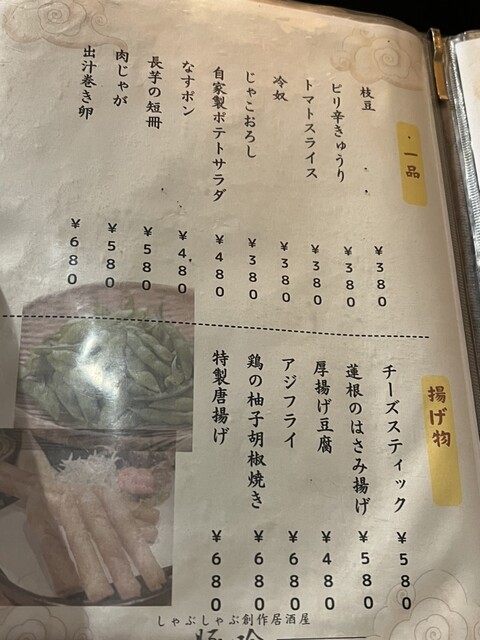 一品
枝豆 ¥380
ピリ辛きゅうり ¥380
トマトスライス ¥380
冷奴 ¥380
じゃこおろし ¥380
自家製ポテトサラダ ¥480
なすポン ¥480
長芋の短冊 ¥580
肉じゃが ¥580
出汁巻き卵 ¥680
揚げ物
チーズスティック ¥580
蓮根のはさみ揚げ ¥580
厚揚げ豆腐 ¥480
アジフライ ¥680
鶏の柚子胡椒焼き ¥680
特製唐揚げ ¥680
しゃぶしゃぶ創作居酒屋